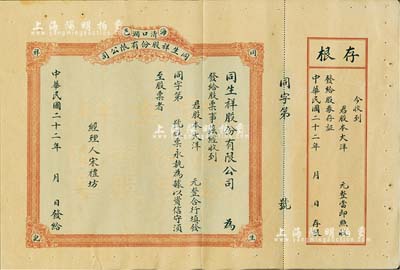 上海陽明拍賣
海清口國邑
同生祥股份有限公司
同
祥
生
記
同生祥股份有限公司 為
發給股票事茲經收到
君股本大洋 元整合行填發
同字第 號股票永執為據以資信守須
至股票者
經理人宋禮坊
中華民國二十二年 月 日發給
同字第 號
存根
今收到
君股本大洋 元整當即照收
發給股券存証
中華民國二十二年 月 日存根